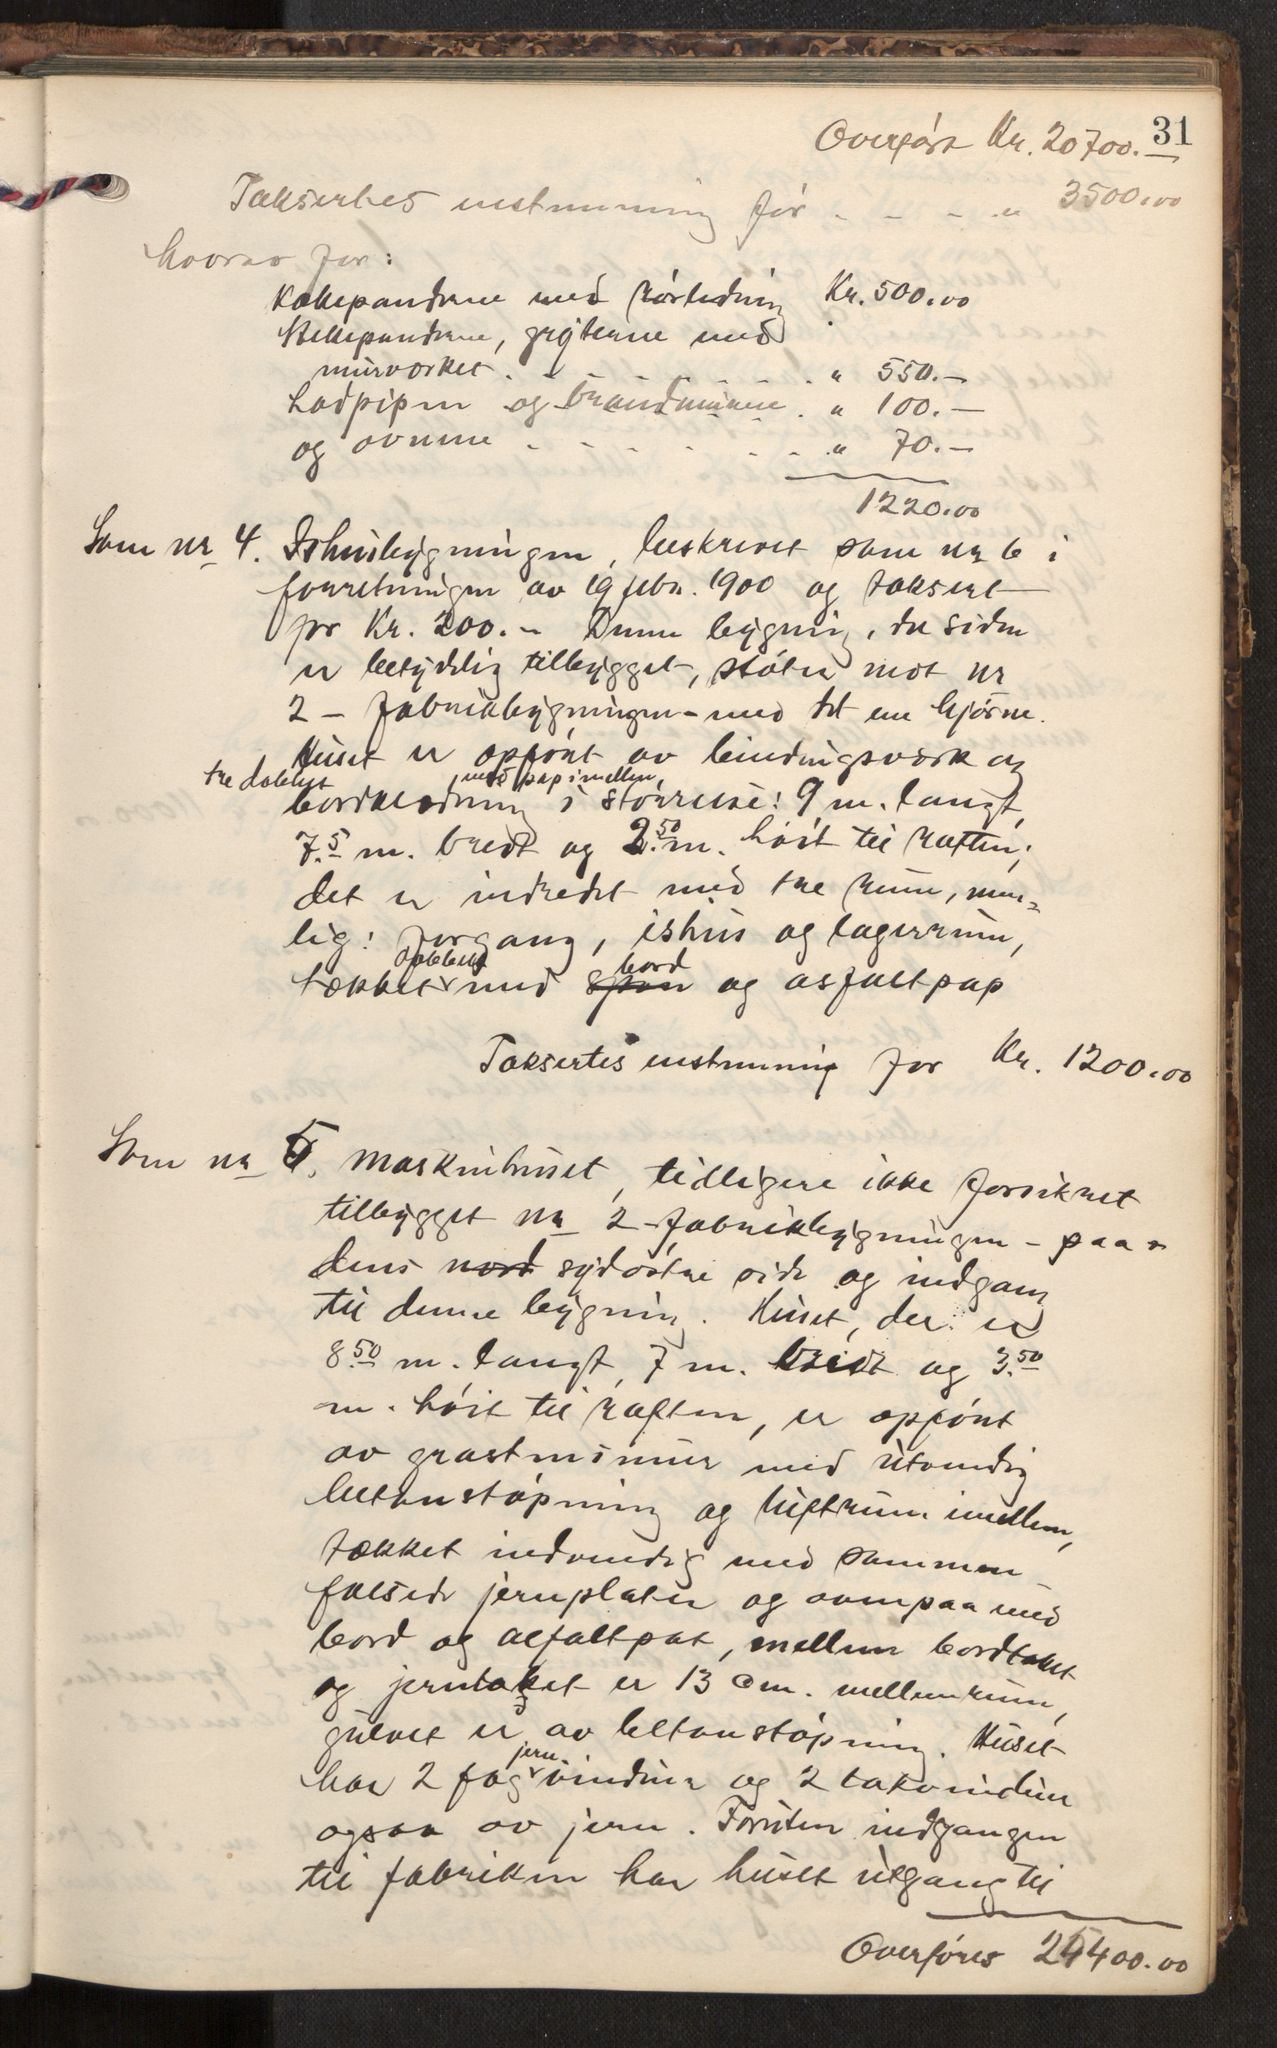 31
Overført Kr. 20700.—
Taksertes enstemmig for - - - " 3500.00
hvorav for:
Kokepandene med rørledning Kr. 500.00
Stekepandene, gryterne med
murverket . - - - - - " 550.—
Lodpipen og brandmurene . " 100.—
og ovnene - - - - - - " 70.—
1220.00
Som nr 4. Ishusbygningen, beskrevet som nr 6 i
forretningen av 19 febr. 1900 og taksert
for Kr. 200.— Denne bygning, der siden
er betydelig tilbygget, støter mot nr
2 – fabrikbygningen – med det ene hjørne.
Huset er opført av bindingsverk og
tre dobbelt bordklædning med pap imellem, i størrelse: 9 m. langt,
7.5 m. bredt og 2.50 m. høit til raften;
det er indredet med tre rum, nem=
lig: forgang, ishus og lagerrum,
tækket dobbelt med span bord og asfaltpap
Taksertes enstemmig for Kr. 1200.00
Som nr 5. Maskinhuset, tidligere ikke forsikret
tilbygget nr 2 – fabrikbygningen – paa
dens nord sydøstre side og indgang
til denne bygning. Huset, der er
8.50 m. langt, 7 m. bredt og 3.50
m. høit til raften, er opført
av graastensmur med utvendig
betonstøpning og luftrum imellem,
tækket indvendig med sammen
falsede jernplater og ovenpaa med
bord og asfaltpat, mellem bordtaket
og jerntaket er 13 cm. mellemrum,
gulvet er av betonstøpning. Huset
har 2 fag jern vinduer og 2 takvinduer
ogsaa av jern. Foruten indgangen
til fabriken har huset utgang til
Overføres 25400.00